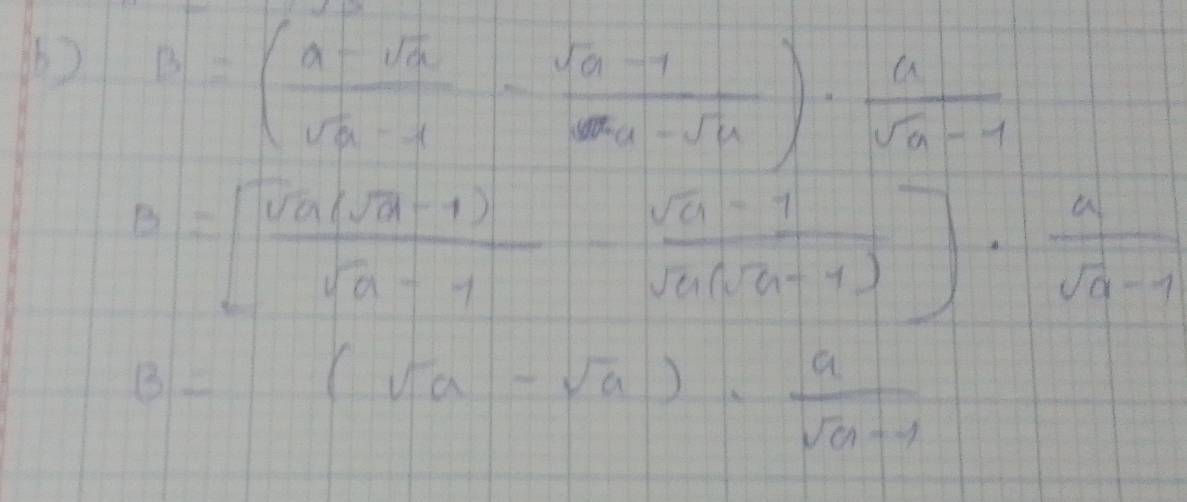 b) B = ( (a - √a)/(√a - 1) - (√a - 1)/(a - √a) ) · a/(√a - 1)
B = [ √a(√a - 1)/(√a - 1) - (√a - 1)/(√a(√a - 1)) ] · a/(√a - 1)
B = ( √a - √a ) · a/(√a - 1)